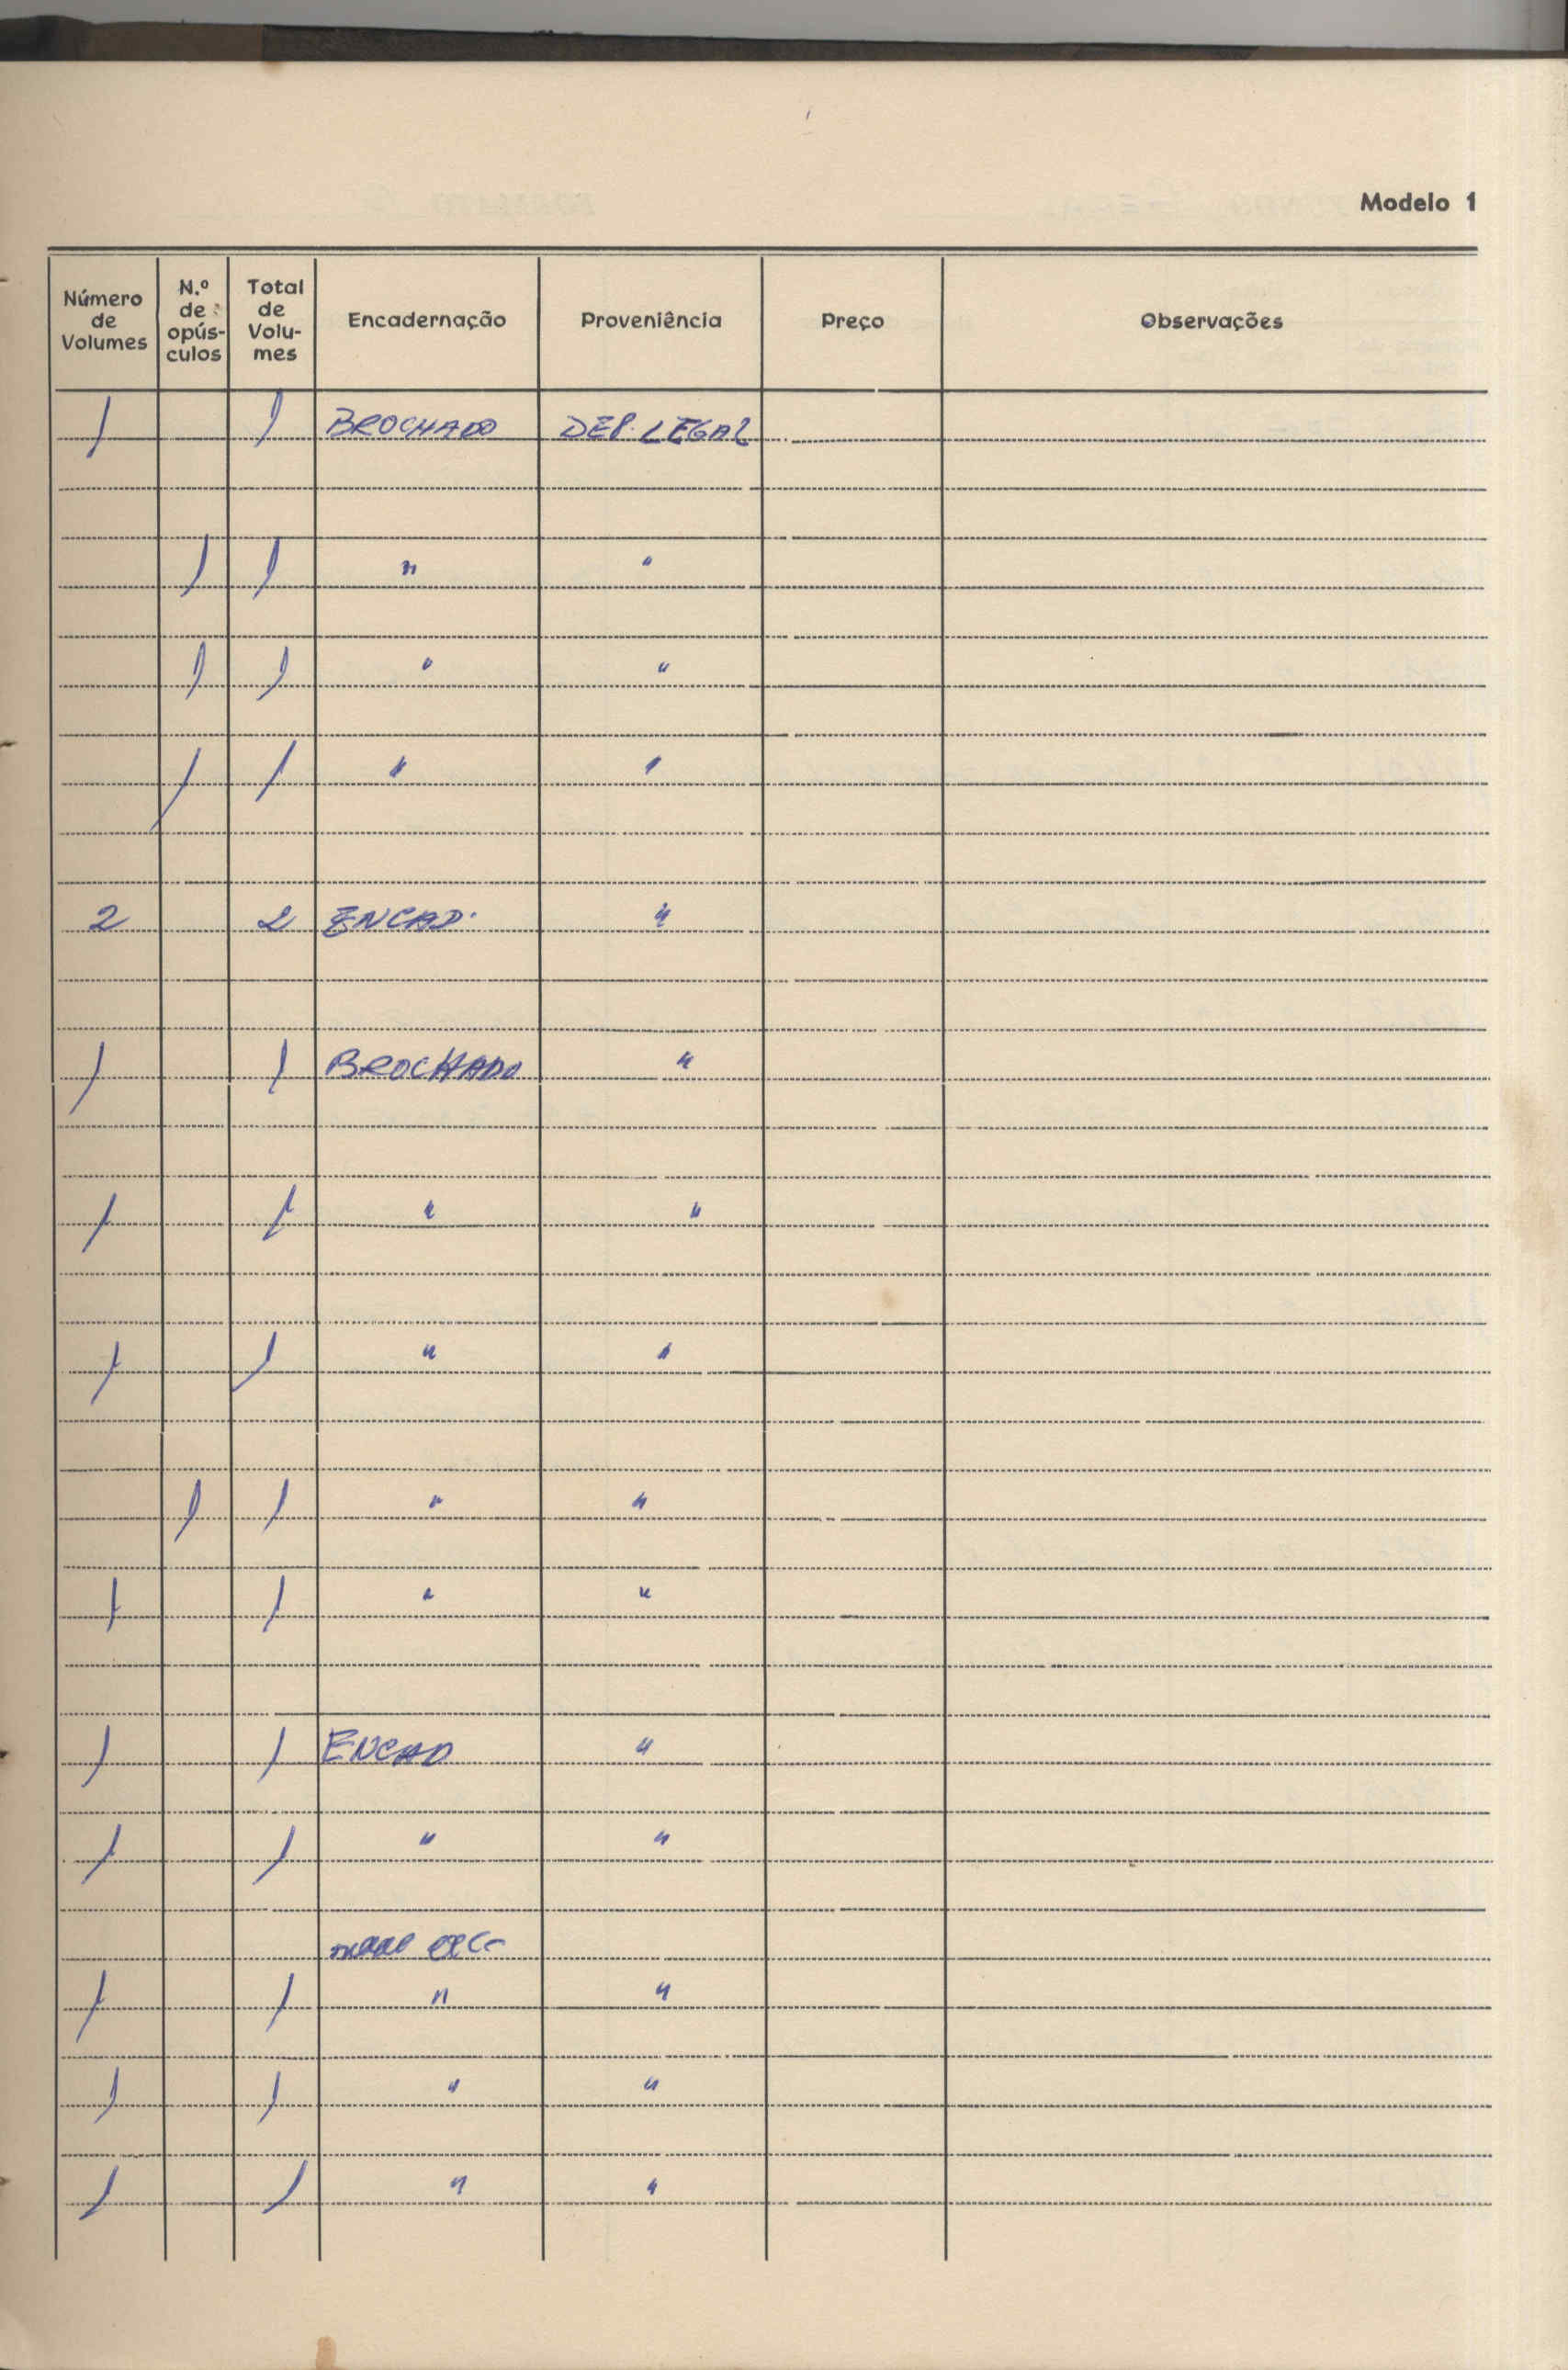 Modelo 1
Número de Volumes N.º de opús-culos Total de Volu-mes Encadernação Proveniência Preço Observações
1 1 BROCHADO DEP. LEGAL
1 1 " "
1 1 " "
1 1 " "
2 2 ENCAD. "
1 1 BROCHADO "
1 1 " "
1 1 " "
1 1 " "
1 1 " "
1 1 ENCAD "
1 1 " "
1 1 " "
1 1 " "
1 1 " "